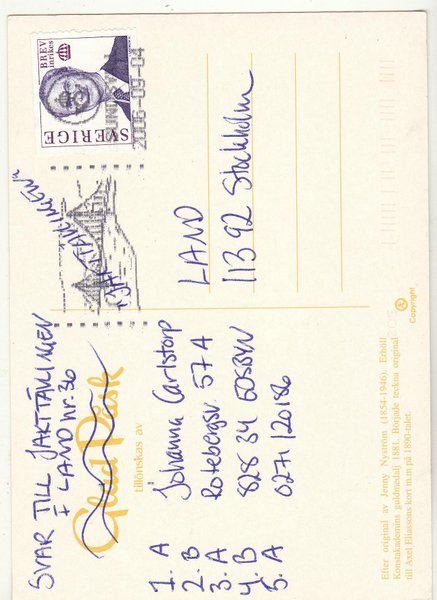 SVAR TILL JAKTTÄVLINGEN
I LAND nr. 36
Glad Påsk
tillönskas av
1. A
2. B
3. A
4. B
5. A
Johanna Carlstorp
Rotebergsv. 57 A
828 34 EDSBYN
0271/20186
BREV
inrikes
SVERIGE
2006-09-04
"JAKTTÄVLINGEN"
LAND
113 92 Stockholm
Copyright
Efter original av Jenny Nyström (1854-1946). Erhöll
Konstakademins guldmedalj 1881. Började teckna original
till Axel Eliassons kort m.m på 1890-talet.